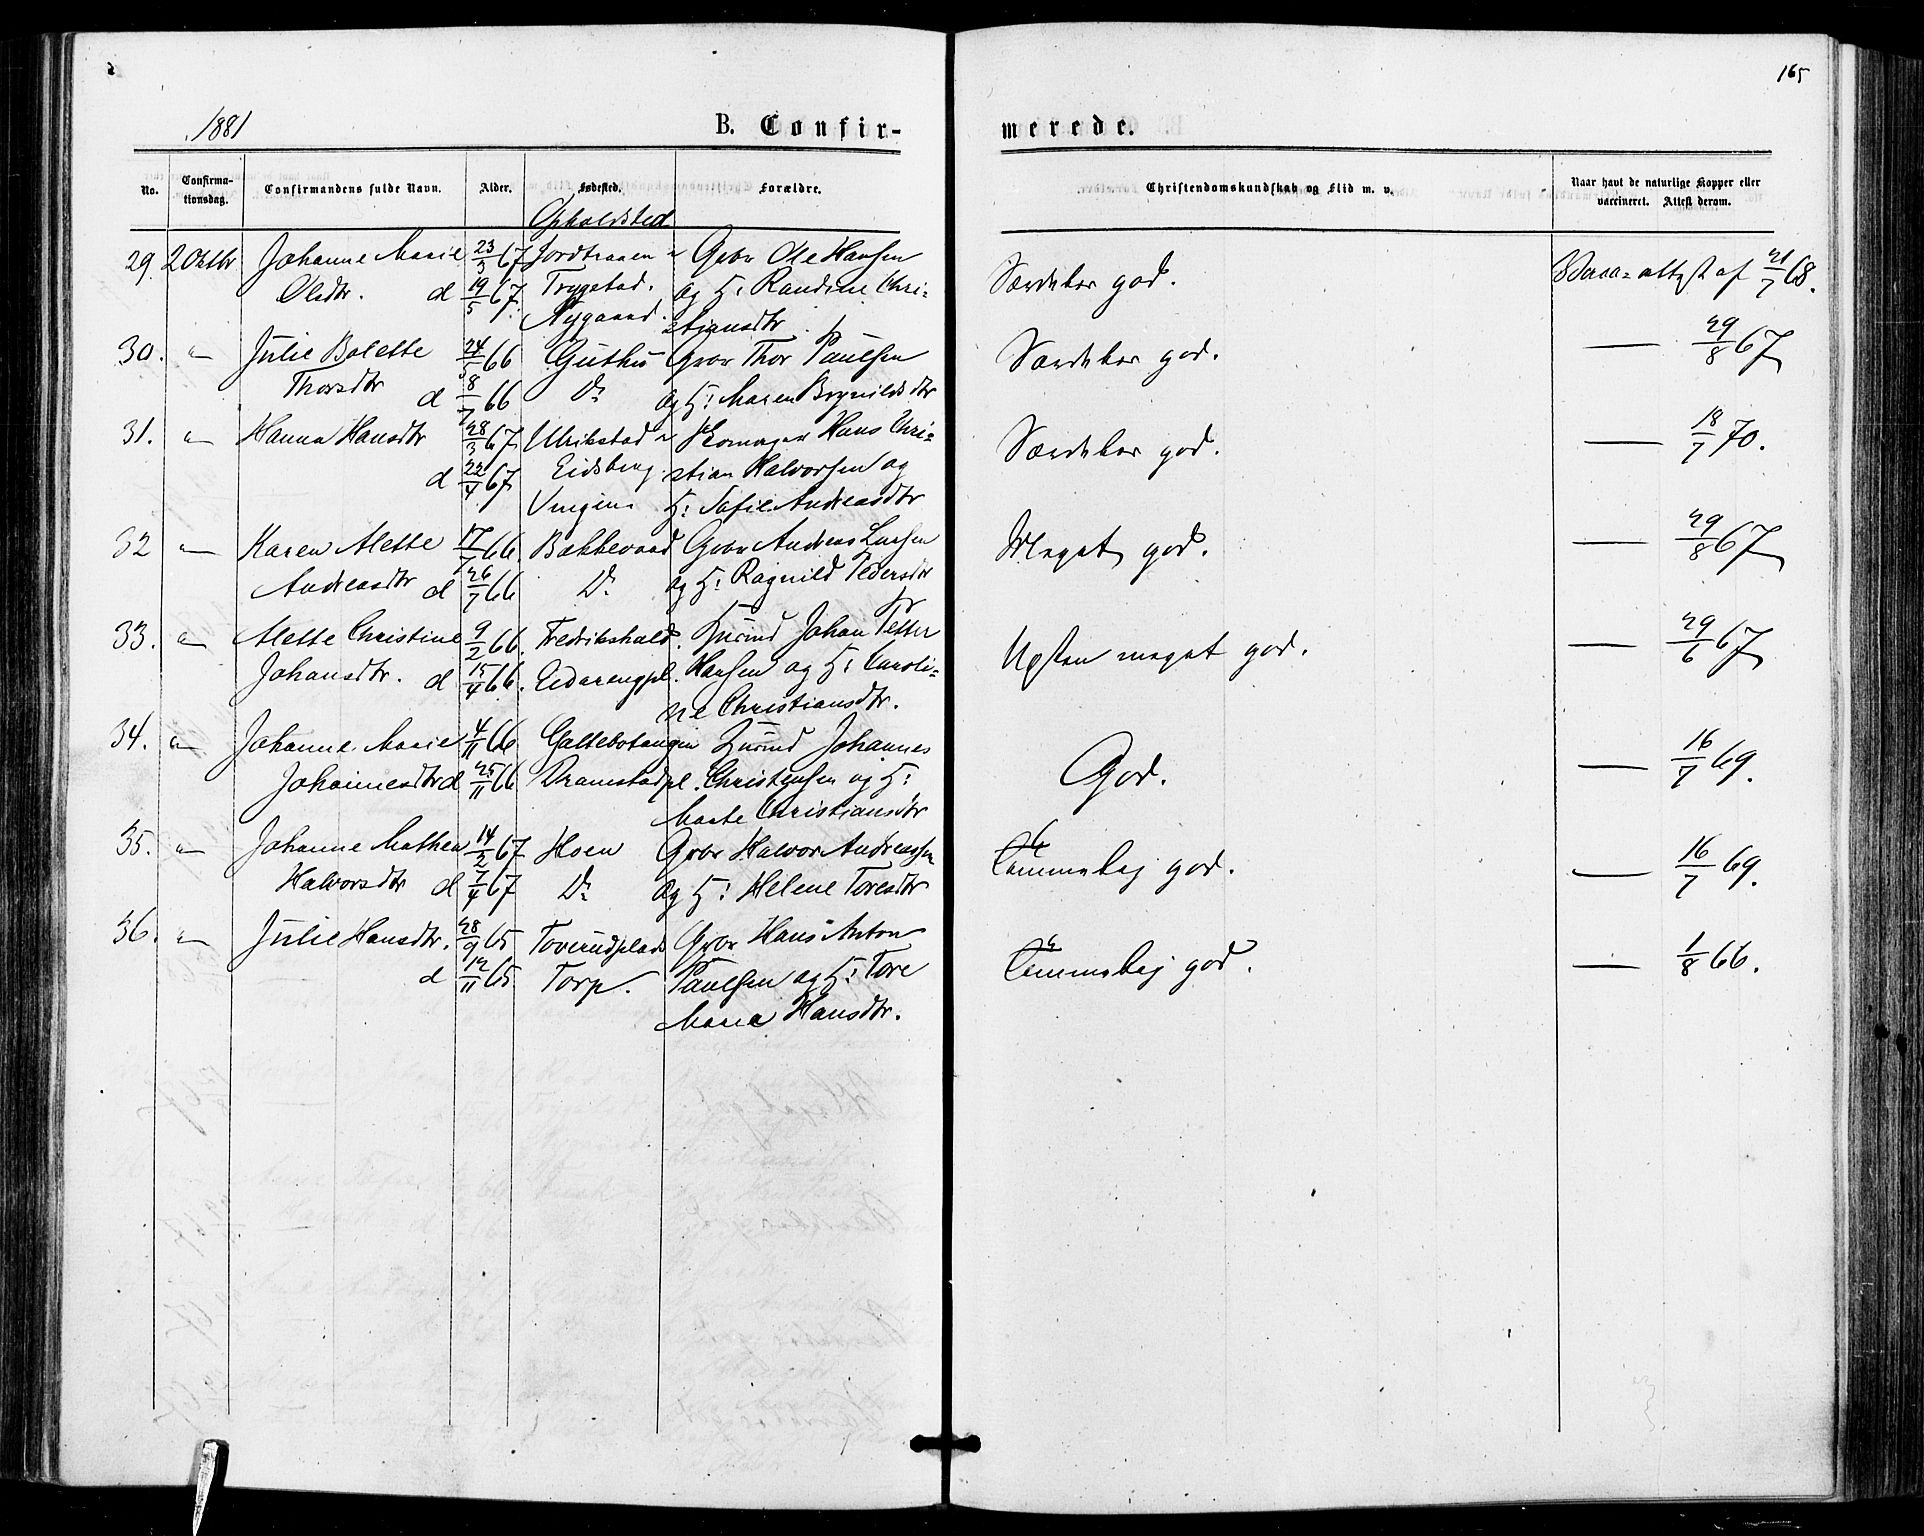 165
1881
B. Confir-
merede.
No.
Confirma-
tionsdag.
Confirmandens fulde Navn.
Alder.
Fødested.
Forældre.
Christendomskundskab og Flid m. v.
Naar havt de naturlige Kopper eller
vaccineret. Attest derom.
Opholdsted
29. 2 Oktbr Johanne Marie 23/3 67 Gbr Ole Hansen
Olsdtr. d 19/5 67. Trygstad. og H: Randine Chri-
Nygaard. stiansdtr
Særdeles god. attest af 21/7 68.
30. " Julie Bolette 24/5 66 Guthus Gbr Thor Paulsen
Thorsdtr d 8/7 66 Do og H: Maren Brynildsdtr
Særdeles god. — 29/8 67
31. " Hanna Hansdtr 28/3 67 Ulrikstad Skomager Hans Chri-
d 22/4 67 Eidsberg stian Halvorsen og
H: Sofie Andreasdtr
Særdeles god. — 18/7 70.
32 " Karen Alette 17/7 66 Gbr Andreas Larsen
Andreasdtr d 26/7 66 Do og H: Ragnild Pedersdtr
Meget god. — 29/8 67
33. " Alette Christine 9/2 66. Fredrikshald. Husmd Johan Petter
Johansdtr. d 15/4 66. Hansen og H: Caroli-
ne Christiansdtr.
Næsten meget god. — 29/6 67
34. " Johanne Marie 4/11 66 Husmd Johannes
Johannesdtr d 25/11 66 Dramstadpl. Christensen og H:
Marte Christiansdtr
God. — 16/7 69.
35. " Johanne Mathea 14/2 67 Hoen Gbr Halvor Andreassen
Halvorsdtr d 7/4 67 Do og H: Helene Toresdtr
Temmelig god. — 16/7 69.
36. " Julie Hansdtr. 28/9 65 Toverudplads Gbr Hans Anton
d 12/11 65 Torp. Paulsen og H: Tore
Maria Hansdtr.
Temmelig god. — 1/8 66.